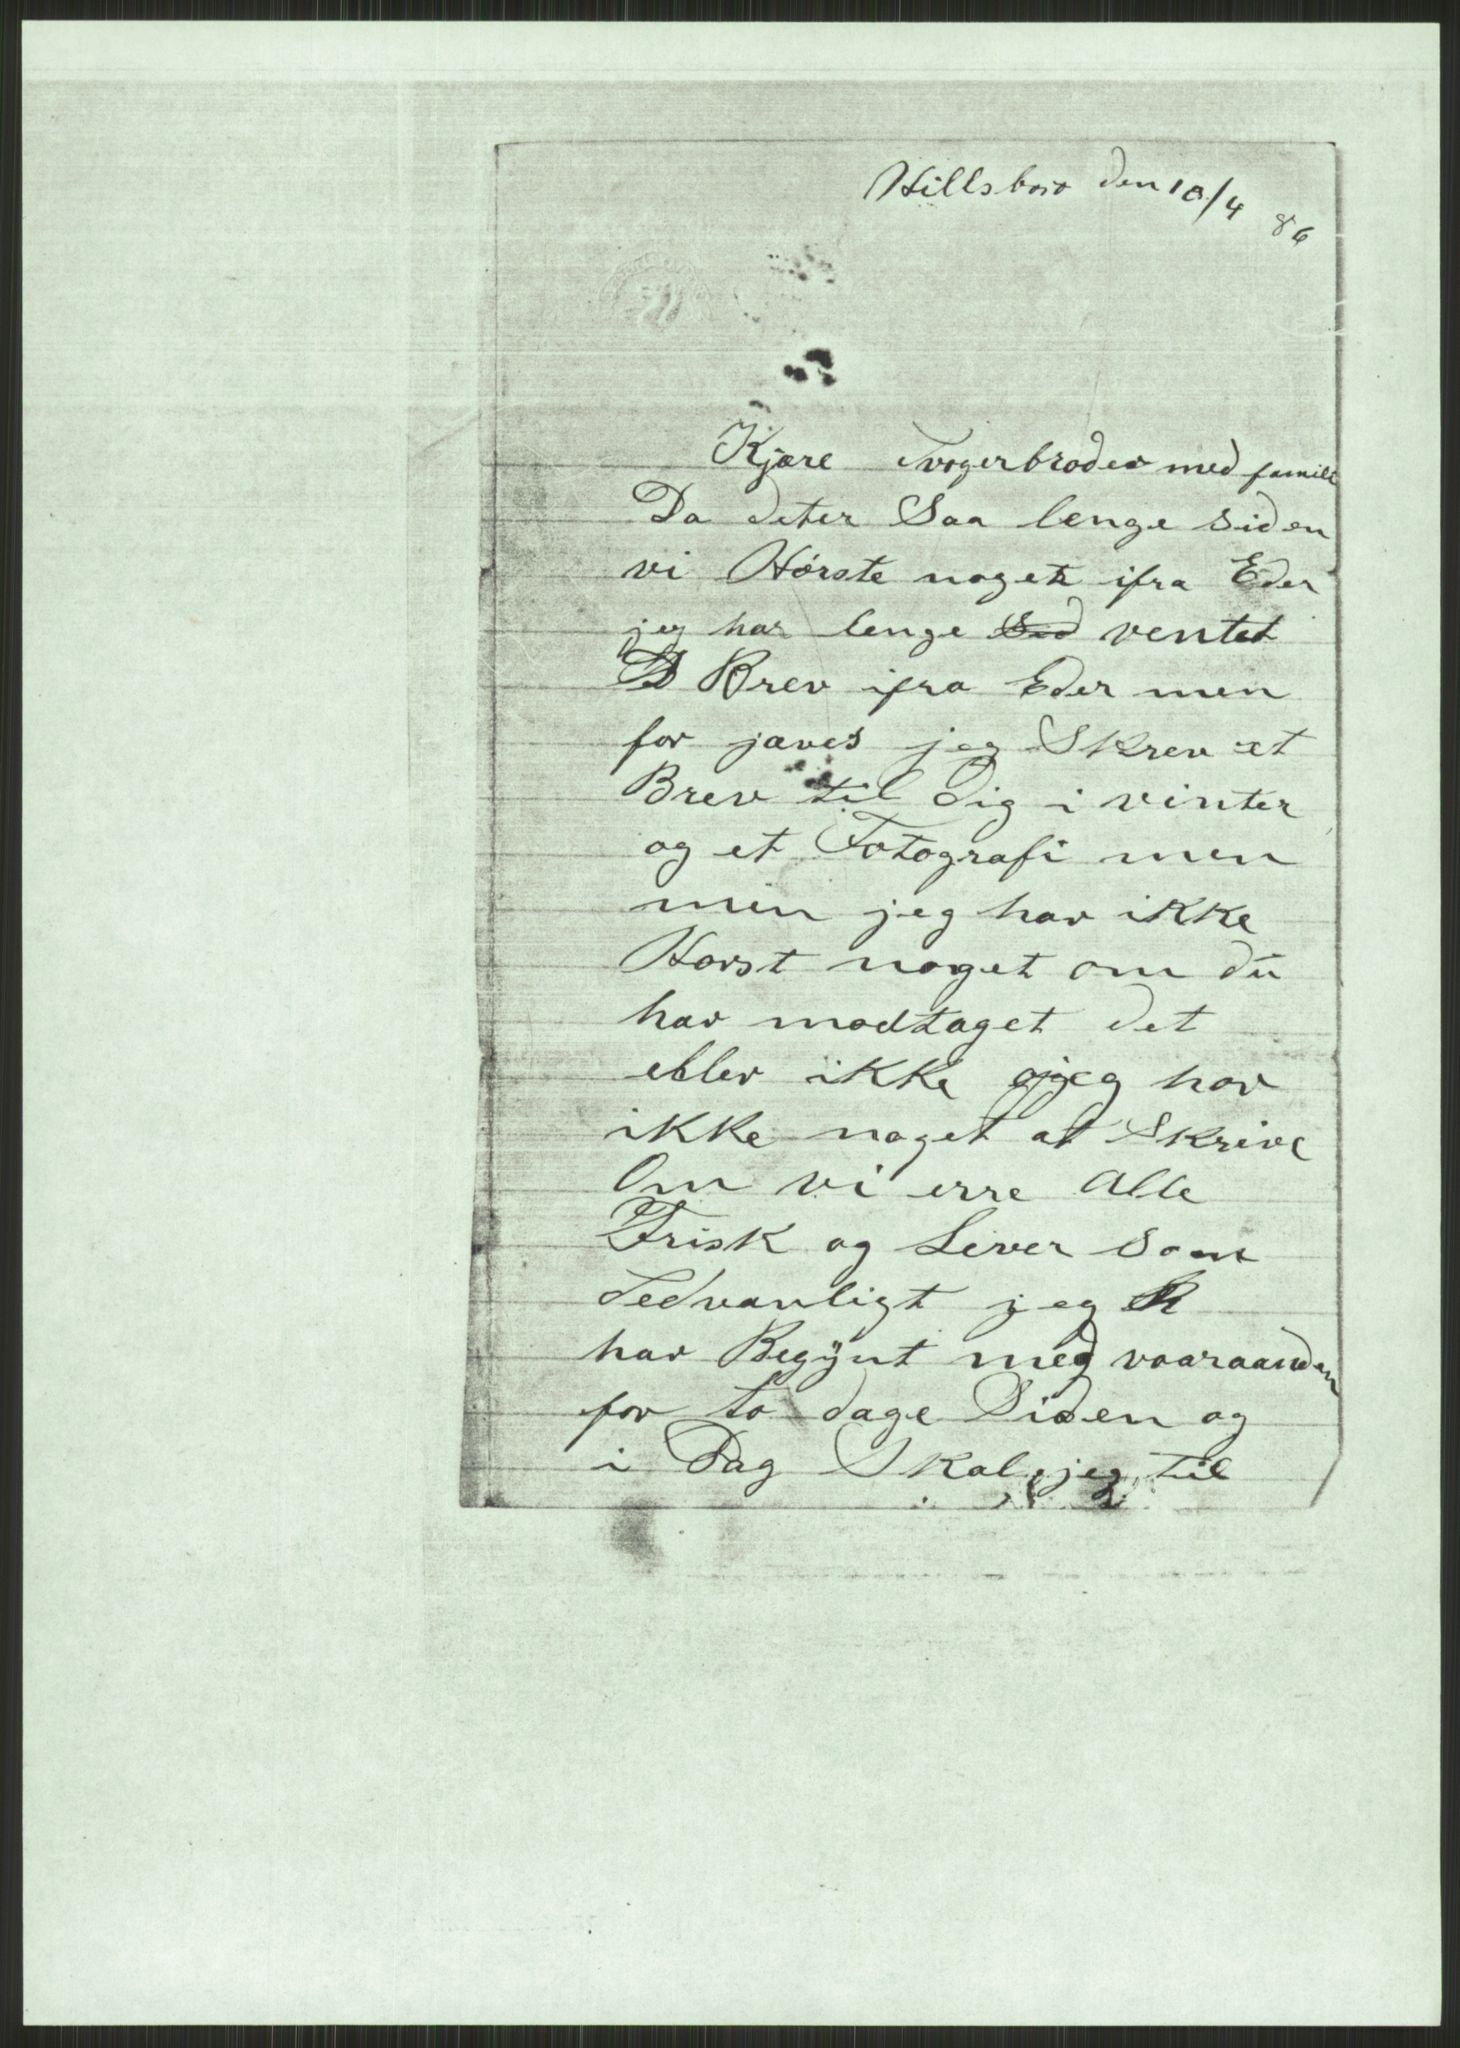 Hillsboro den 10/4 86
Kjære Svogerbroder med famili
Da deter Saa lenge siden
vi Hørste noget ifra Eder
jeg har lenge ventet
Brev ifra Eder men
for javes jeg Skrev et
Brev til dig i vinter
og et Fotografi men
min jeg har ikke
Hørst noget om du
har modtaget det
eller ikke jeg har
ikke noget at Skrive
Om vi erre Alle
Frisk og Lever som
Sedvanligt jeg
har Begynt med vaaraanden
for to dage Siden og
i Dag Skal jeg til